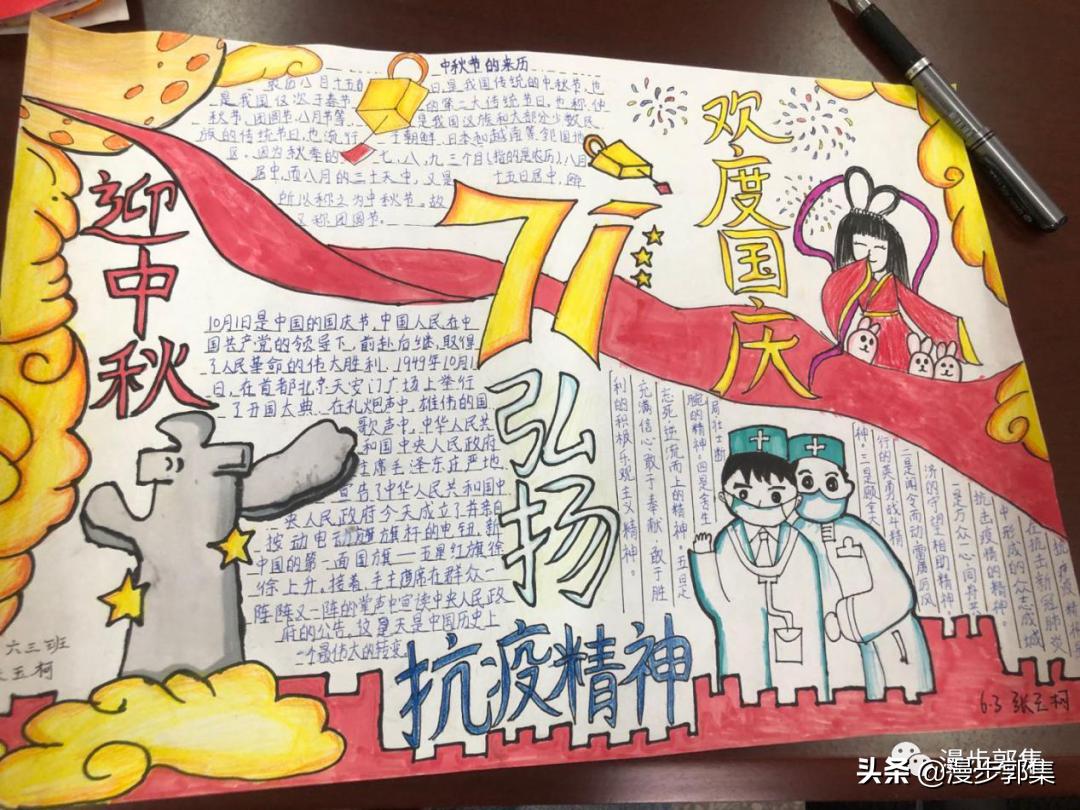 中秋节的来历
农历八月十五日,是我国传统的中秋节,也
是我国仅次于春节的第二大传统节日,也称仲
秋节、团圆节、八月节等,是我国汉族和大部分少数民
族的传统节日,也流行于朝鲜、日本和越南等邻国地
区。因为秋季的七、八、九三个月(指的是农历),八月
居中,而八月的三十天中,又是十五日居中,
所以称之为中秋节。故
又称团圆节。
迎中秋
71
欢度国庆
10月1日是中国的国庆节,中国人民在中
国共产党的领导下,前赴后继,取得
了人民革命的伟大胜利。1949年10月1
日,在首都北京天安门广场上举行
了开国大典,在礼炮声中,雄伟的国
歌声中,中华人民共
和国中央人民政府
主席毛泽东庄严地
宣告了中华人民共和国中
央人民政府今天成立了并亲自
按动电动旗杆的电钮,新
中国的第一面国旗——五星红旗徐
徐上升,接着,毛主席在群众一
阵阵又一阵的掌声中宣读中央人民政
府的公告。故是天是中国历史上
一个最伟大的转变
弘扬
抗疫精神
在抗击新冠肺炎
中形成的众志成城
抗击疫情的精神。
一是万众一心、同舟共
济的守望相助精神
二是闻令而动、雷厉风
行的英勇战斗精
神。三是顾全大
局、壮士断
腕的精神。四是舍生
忘死、逆流而上的精神。五是
充满信心、敢于奉献、敢于胜
利的积极乐观主义精神。
六三班
6.3 张云柯
漫步郭集
头条 @漫步郭集